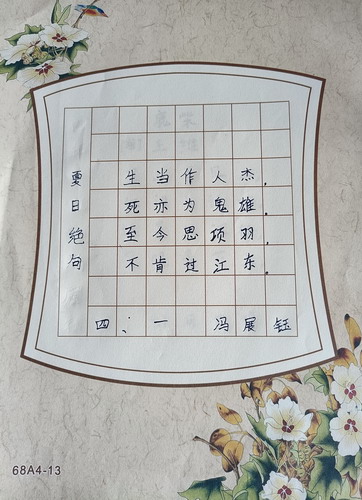 夏日绝句
生当作人杰，
死亦为鬼雄。
至今思项羽，
不肯过江东。
四、一 冯展钰
68A4-13